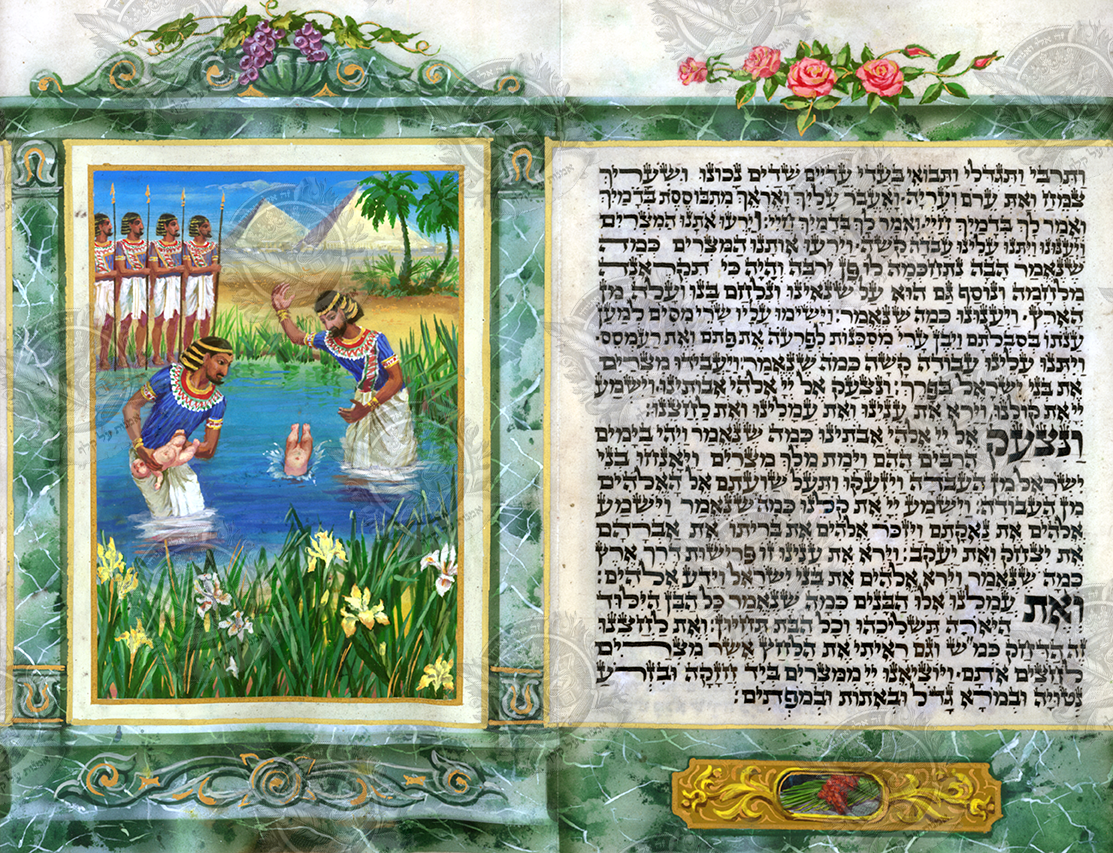 ותרבי ותגדלי ותבואי בעדי עדיים שדים נכונו ושערך
צמח ואת ערם ועריה: ואעבר עליך ואראך מתבוססת בדמיך
ואמר לך בדמיך חיי ואמר לך בדמיך חיי: וירעו אתנו המצרים
ויענונו ויתנו עלינו עבדה קשה: וירעו אותנו המצרים כמה
שנאמר הבה נתחכמה לו פן ירבה והיה כי תקראנה
מלחמה ונוסף גם הוא על שנאינו ונלחם בנו ועלה מן
הארץ: ויענונו כמה שנאמר: וישימו עליו שרי מסים למען
ענתו בסבלתם ויבן ערי מסכנות לפרעה את פתם ואת רעמסס:
ויתנו עלינו עבודה קשה כמה שנאמר: ויעבידו מצרים
את בני ישראל בפרך: ונצעק אל יי אלהי אבותינו וישמע
יי את קולנו וירא את ענינו ואת עמלינו ואת לחצנו:
ונצעק אל יי אלהי אבתינו כמה שנאמר ויהי בימים
הרבים ההם וימת מלך מצרים ויאנחו בני
ישראל מן העבדה ויזעקו ותעל שועתם אל האלהים
מן העבודה: וישמע יי את קלנו כמה שנאמר וישמע
אלהים את נאקתם ויזכר אלהים את בריתו את אברהם
את יצחק ואת יעקב: וירא את ענינו זו פרישות דרך ארץ
כמה שנאמר וירא אלהים את בני ישראל וידע אלהים:
ואת עמלנו אלו הבנים כמה שנאמר כל הבן הילוד
היארה תשליכהו וכל הבת תחיון: ואת לחצנו
זה הדחק כמש וגם ראיתי את הלחץ אשר מצרים
לחצים אתם: ויוציאנו יי ממצרים ביד חזקה ובזרע
נטויה ובמרא גדל ובאתות ובמפתים: